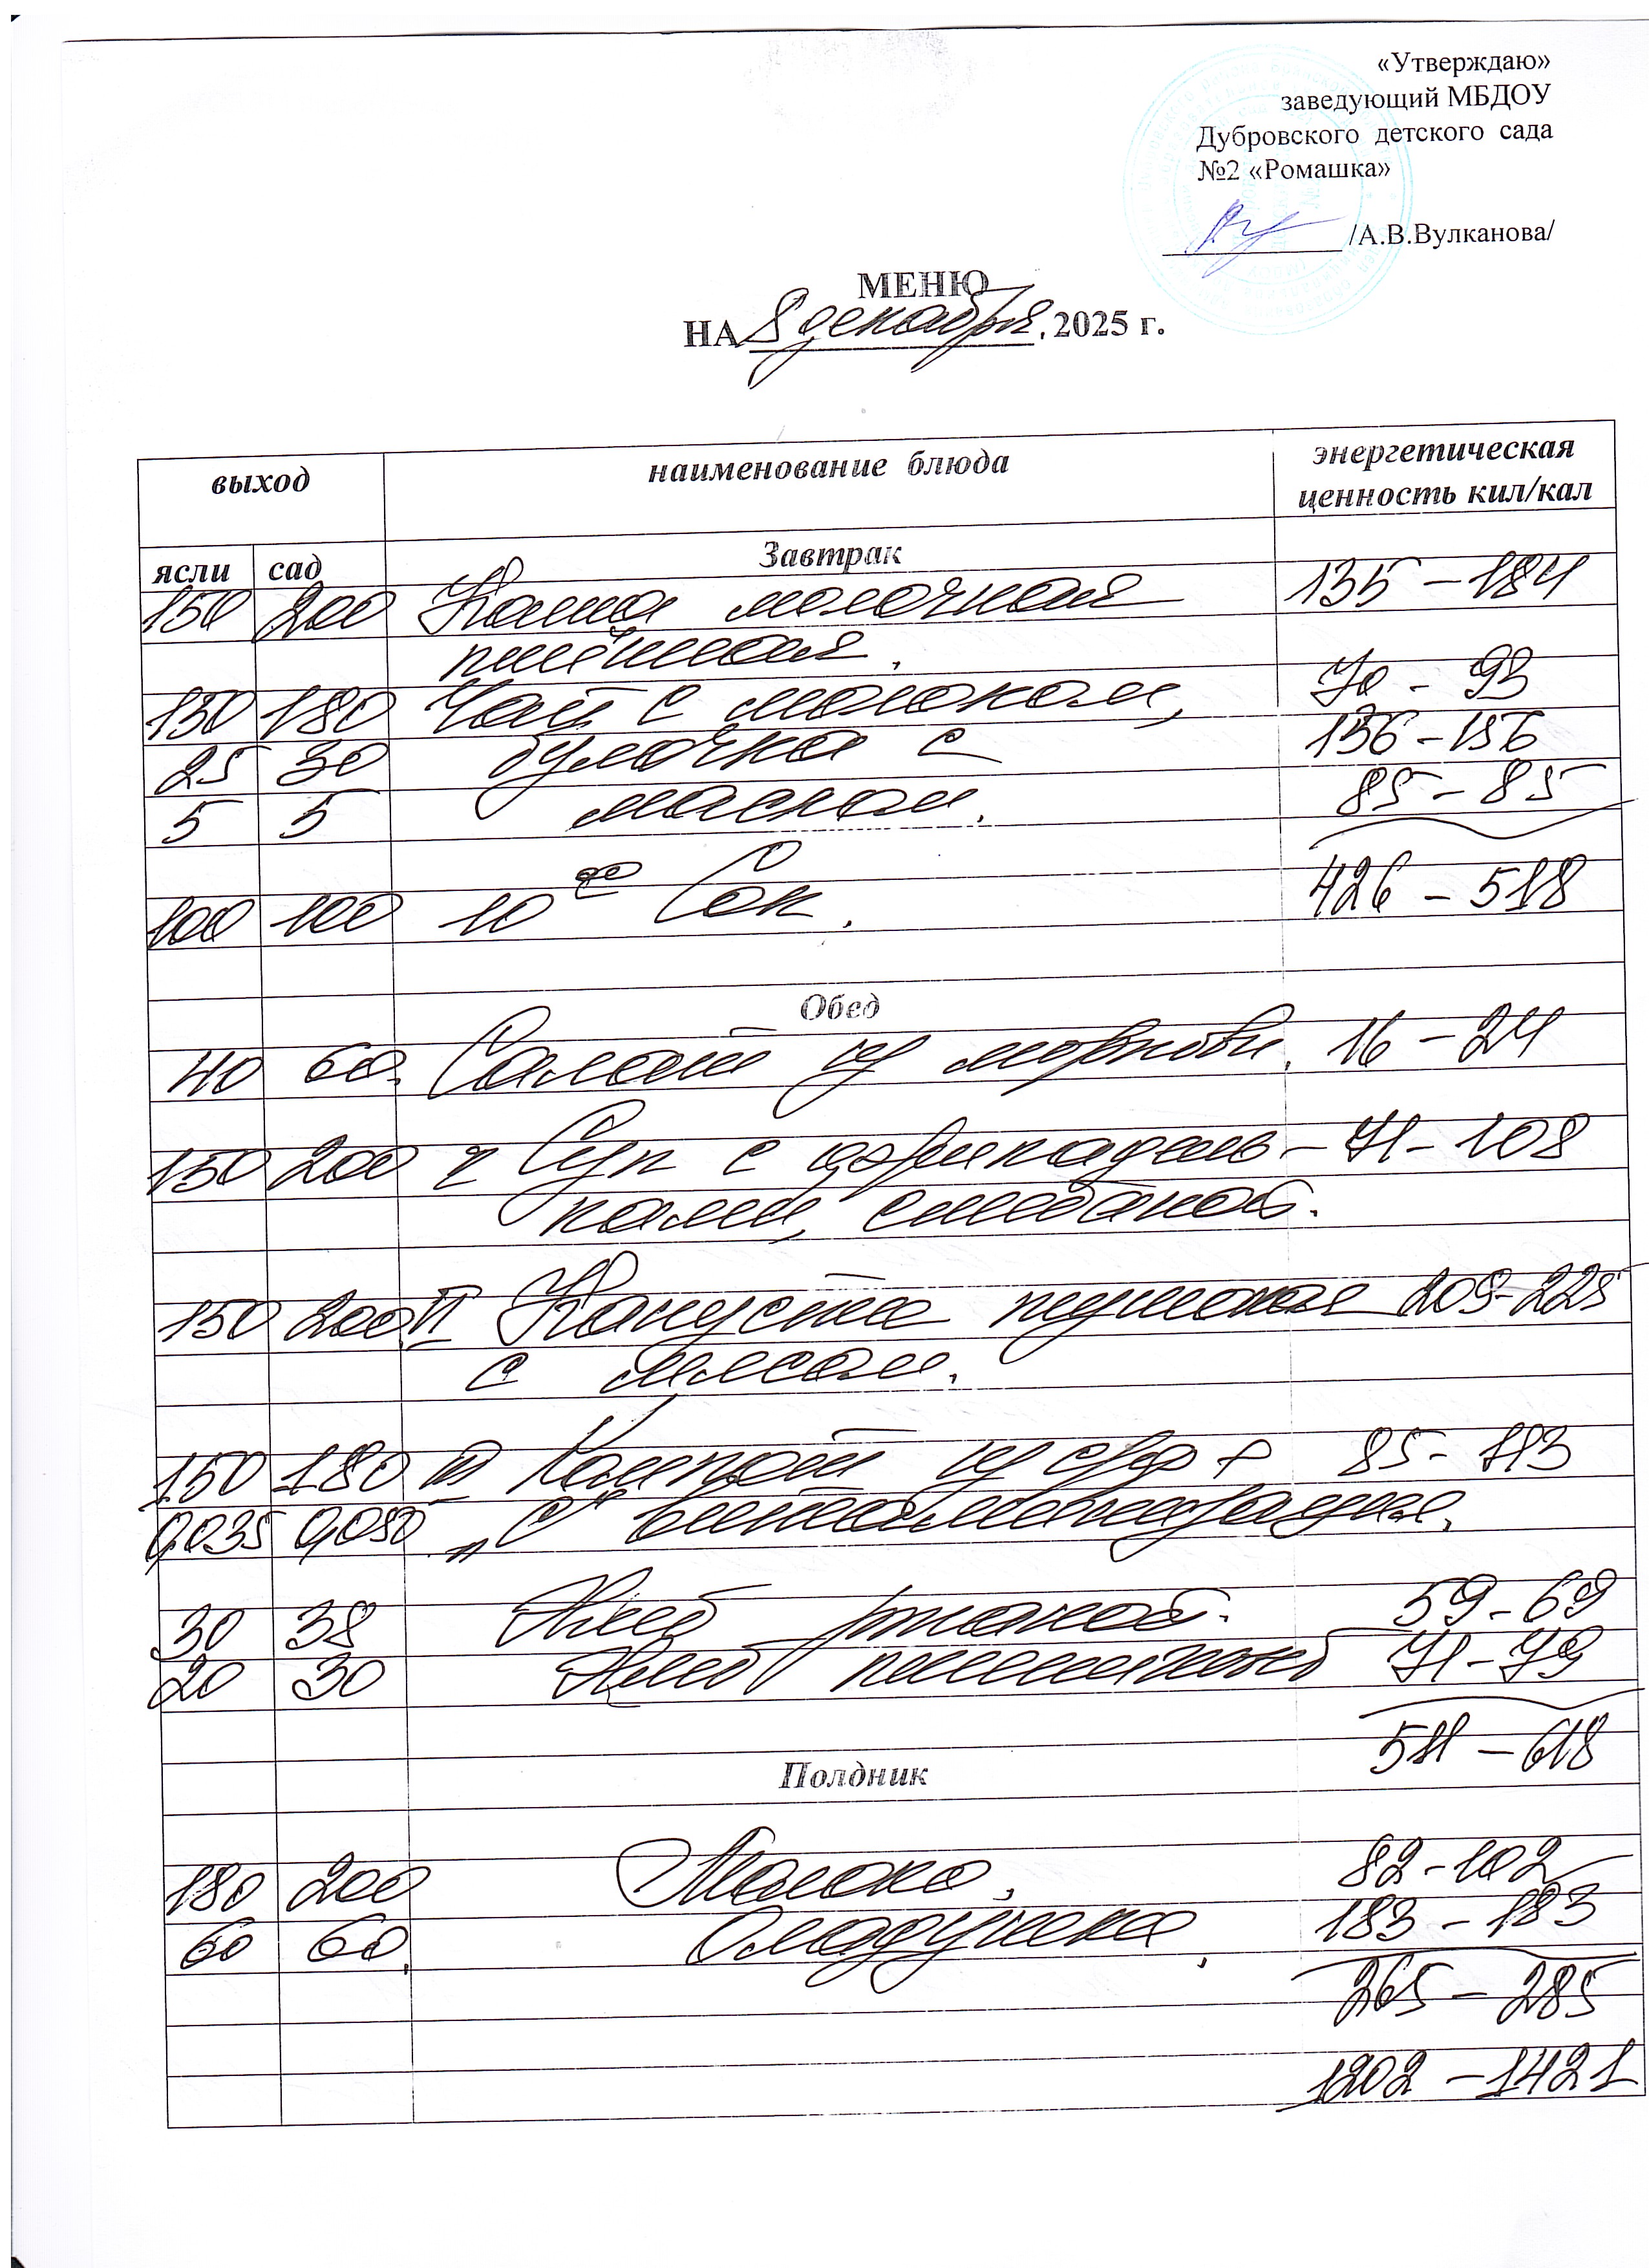 «Утверждаю»
заведующий МБДОУ
Дубровского детского сада
№2 «Ромашка»
/А.В.Вулканова/
МЕНЮ
НА 8 декабря, 2025 г.
выход наименование блюда энергетическая ценность кил/кал
ясли сад Завтрак
150 200 Каша молочная 135 - 184
пшённая.
150 180 Чай с молоком, 70 - 93
25 30 булочка с 136 - 156
5 5 маслом. 85 - 85
426 - 518
100 100 10 00 Сок.
Обед
40 60. Салат из моркови. 16 - 24
150 200 I Суп с фрикадель- 71 - 108
ками, сметаной.
150 200 II Капуста тушеная 209-225
с мясом.
150 180 III Компот из с/ф + 85 - 113
0,035 0,050 „С" витаминизация.
30 38 Хлеб ржаной. 59 - 69
20 30 Хлеб пшеничный 71 - 79
511 - 618
Полдник
180 200 Молоко, 82 - 102
60 60. Оладушка. 183 - 183
265 - 285
1202 - 1421